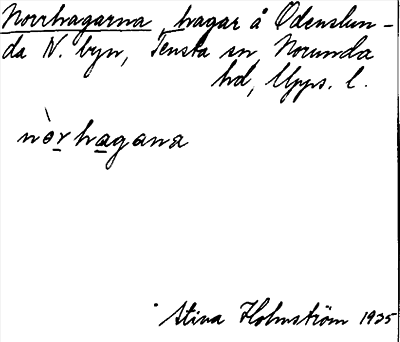 Norrhagarna, hagar å Odenslun-
da N. byn, Tensta sn Norunda
hd, Upps. l.
nòrhagana
Stina Holmström 1935